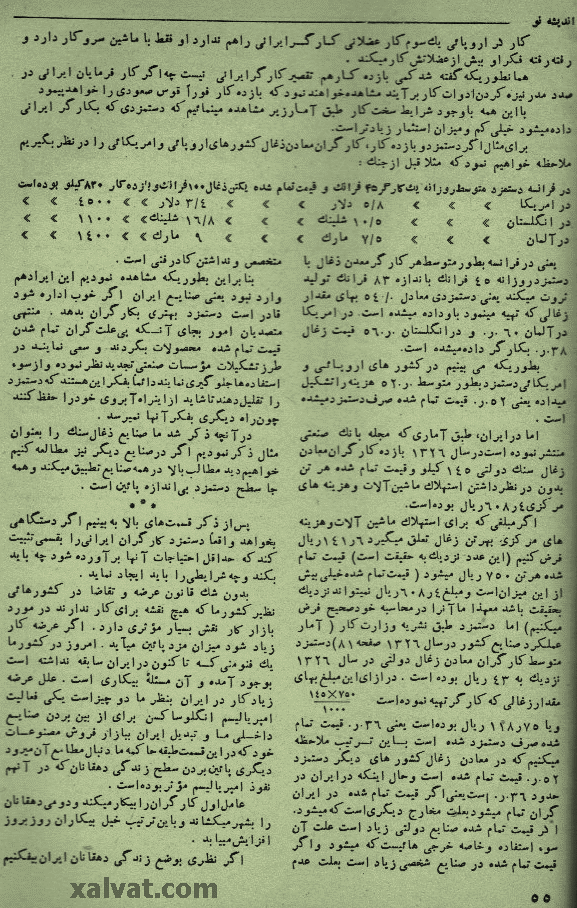 اندیشه نو
کار گر اروپائی یك سوم کار عضلانی کارگر ایرانی را هم ندارد او فقط با ماشین سروکار دارد و
رفته رفته فکر او بیش از عضلاتش کار میکند .
همانطوریکه گفته شد کمی بازده کار هم تقصیر کار گر ایرانی نیست چه اگر کار فرمایان ایرانی در
صدد مدرنیزه کردن ادوات کار بر آیند مشاهده خواهند نمود که بازده کار فوراً قوس صعودی را خواهد پیمود
با این همه با وجود شرایط سخت کار طبق آمار زیر مشاهده مینمائیم که دستمزدی که بکار گر ایرانی
داده میشود خیلی کم و میزان استثمار زیادتر است.
برای مثال اگر دستمزد و بازده کار، کار گران معادن ذغال کشورهای اروپائی و امریکائی را در نظر بگیریم
ملاحظه خواهیم نمود که مثلا قبل از جنك :
در فرانسه دستمزد متوسط روزانه یك کارگر ۴۵ فرانك و قیمت تمام شده یکتن ذغال ۱۰۰ فرانك و بازده کار ۸۳۰ کیلو بوده است
در امریکا » » » ۵/۸ دلار » » » ۳/۴ دلار » » ۴۵۰۰ » »
در انگلستان » » » ۱۰/۵ شلینك » » » ۱۶/۸ شلینك » » ۱۱۰۰ » »
در آلمان » » » ۷/۵ مارك » » » ۹ مارك » » ۱۴۰۰ » »
یعنی در فرانسه بطور متوسط هر کار گر معدن ذغال با
دستمزد روزانه ۴۵ فرانك باندازه ۸۳ فرانك تولید
ثروت میکند یعنی دستمزدی معادل ۵۴٪ بهای مقدار
زغالی که تهیه مینمود باو داده میشده است. در امریکا
در آلمان ۶۰.ر. و در انگلستان ۵۶.ر. قیمت زغال
۳۸.ر. بکار گر داده میشده است.
بطوریکه می بینیم در کشور های اروپائی و
امریکائی دستمزد بطور متوسط ۵۲.ر. هزینه را تشکیل
میداده یعنی ۵۲.ر. قیمت تمام شده صرف دستمزد میشده
است .
اما در ایران، طبق آماری که مجله بانك صنعتی
منتشر نموده است در سال ۱۳۲۶ بازده کار گران معادن
زغال سنك دولتی ۱۴۵ کیلو و قیمت تمام شده هر تن
بدون در نظر داشتن استهلاك ماشین آلات و هزینه های
مرکزی ۶۰۸٫۴ ریال بوده است.
اگر مبلغی که برای استهلاك ماشین آلات و هزینه
های مرکزی بهر تن زغال تعلق میگیرد ۱۴۱٫۶ ریال
فرض کنیم (این عدد نزدیك به حقیقت است) قیمت تمام
شده هر تن ۷۵۰ ریال میشود ( قیمت تمام شده خیلی بیش
از این میزان است و مبلغ ۶۰۸٫۴ ریال نمیتواند نزدیك
بحقیقت باشد معهذا ما آنرا در محاسبه خود صحیح فرض
میکنیم ) اما دستمزد طبق نشریه وزارت کار ( آمار
عملکرد صنایع کشور در سال ۱۳۲۶ صفحه ۸۱ ) دستمزد
متوسط کار گران معادن زغال دولتی در سال ۱۳۲۶
نزدیك به ۴۳ ریال بوده است . در ازای این مبلغ بهای
مقدار زغالی که کار گر تهیه نموده است ۱۴۵×۷۵۰ / ۱۰۰۰
و یا ریال بوده است یعنی ۳۶.ر. قیمت تمام
شده صرف دستمزد شده است با این ترتیب ملاحظه
میکنیم که در معادن زغال کشور های دیگر دستمزد
۵۲.ر. قیمت تمام شده است و حال اینکه در ایران در
حدود ۳۶.ر. است یعنی اگر قیمت تمام شده در ایران
گران تمام میشود بعلت مخارج دیگری است که میشود.
اگر قیمت تمام شده صنایع دولتی زیاد است علت آن
سوء استفاده و خاصه خرجی هائیست که میشود و اگر
قیمت تمام شده در صنایع شخصی زیاد است بعلت عدم
متخصص و نداشتن کادر فنی است .
بنابراین بطوریکه مشاهده نمودیم این ایراد هم
وارد نبود یعنی صنایع ایران اگر خوب اداره شود
قادر است دستمزد بهتری بکار گران بدهد . منتهی
متصدیان امور بجای آنکه پی علت گران تمام شدن
قیمت تمام شده محصولات بگردند و سعی نمایند در
طرز تشکیلات مؤسسات صنعتی تجدید نظر نموده و از سوء
استفاده ها جلوگیری نمایند دائماً بفکر این هستند که دستمزد
را تقلیل دهند تا شاید از اینراه آبروی خود را حفظ کنند
چون راه دیگری بفکر آنها نمیرسد .
در آنچه ذکر شد ما صنایع ذغال سنك را بعنوان
مثال ذکر نمودیم اگر در صنایع دیگر نیز مطالعه کنیم
خواهیم دید مطالب بالا در همه صنایع تطبیق میکند و همه
جا سطح دستمزد بی اندازه پائین است .
* * *
پس از ذکر قسمت های بالا به بینیم اگر دستگاهی
بخواهد واقعاً دستمزد کار گران ایرانی را بقسمی تثبیت
کند که حداقل احتیاجات آنها بر آورده شود چه باید
بکند و چه شرایطی را باید ایجاد نماید .
بدون شك قانون عرضه و تقاضا در کشورهائی
نظیر کشور ما که هیچ نقشه برای کار ندارند در مورد
بازار کار نقش بسیار مؤثری دارد . اگر عرضه کار
زیاد شود میزان مزد پائین میآید . امروز در کشور ما
یك فنومنی که تا کنون در ایران سابقه نداشته است
بوجود آمده و آن مسئله بیکاری است . علل عرضه
زیاد کار در ایران بنظر ما دو چیز است یکی فعالیت
امپریالیسم انگلوساکسن برای از بین بردن صنایع
داخلی ما و تبدیل ایران ببازار فروش مصنوعات
خود که در این قسمت طبقه حاکمه ما دنبال مطامع آن میرود
دیگری پائین بردن سطح زندگی دهقانان که در آنهم
نفوذ امپریالیسم مؤثر بوده است .
عامل اول کار گران را بیکار میکند و دومی دهقانان
را بشهر میکشاند و باین ترتیب خیل بیکاران روز بروز
افزایش مییابد .
اگر نظری بوضع زندگی دهقانان ایران بیفکنیم
xalvat.com
۵۵